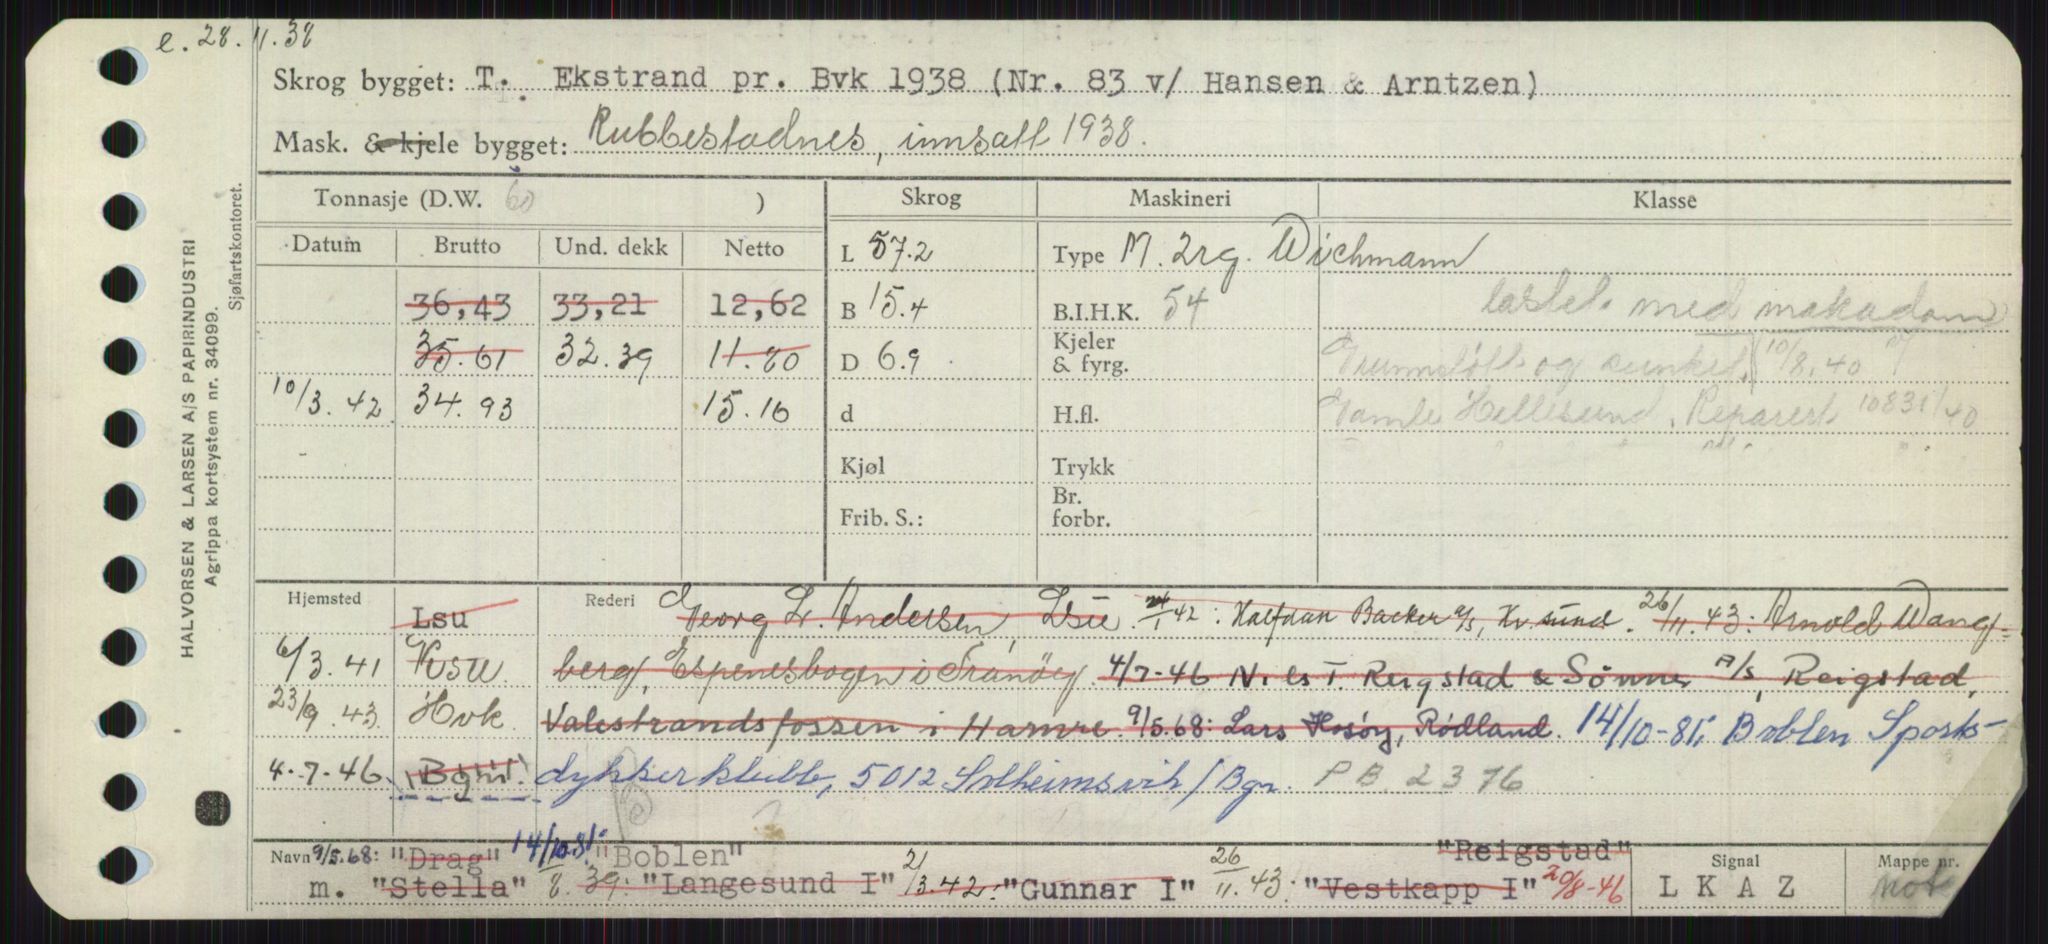 e. 28.11.38
Skrog bygget: T. Ekstrand pr. Bvk 1938 (Nr. 83 v/ Hansen & Arntzen)
Mask. & kjele bygget: Rubbestadnes, innsatt 1938.
Tonnasje (D.W. 60 ) Skrog Maskineri Klasse
Datum Brutto Und. dekk Netto L 57.2 Type M. 2rg. Wichmann
36,43 33,21 12,62 B 15.4 B.I.H.K. 54 lastet med makadam
35.61 32.39 11.80 D 6.9 Kjeler & fyrg. og sunket. 10/8.40
10/3.42 34.93 15.16 d H.fl. Gamle Hellesund. Reparert 10831/40
Kjøl Trykk
Frib. S.: Br. forbr.
Hjemsted Lsu Rederi Georg L. Andersen, Lsu. /1 42: Halfdan Backer a/s, Kr.sund. 26/11.43: Arnold Wang-
6/3.41 Krsu. berg, Espenesbogen i Tranöy 4/7-46 Nils T. Reigstad & Sönner A/S, Reigstad,
23/9.43. Hvk. Valestrandsfossen i Hamre. 9/5.68: Lars Hosøy, Rødland. 14/10-81: Boblen Sports-
4.7.46 Bgn. dykkerklubb, 5012 Solheimsvik/Bgn. P B. 2376
Navn 9/5.68: "Drag" 14/10.81: "Boblen" "Reigstad" Signal Mappe nr.
m. "Stella" /8.39: "Langesund I" 2/3.42: "Gunnar I" 26/11.43: "Vestkapp I" 20/8-46 L K A Z
HALVORSEN & LARSEN A/S PAPIRINDUSTRI
Agrippa kortsystem nr. 34099.
Sjøfartskontoret.